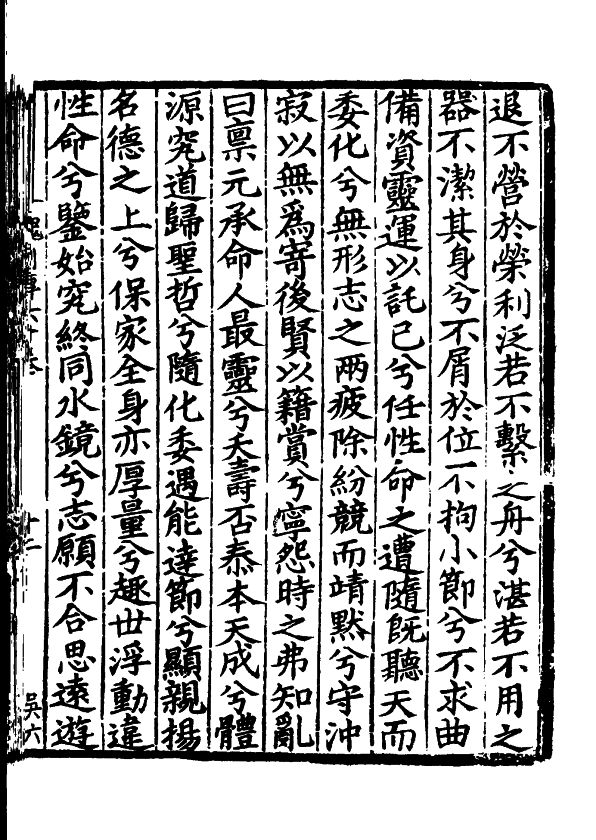 退不營於榮利泛若不繫之舟兮湛若不用之
器不潔其身兮不屑於位不拘小節兮不求曲
備資靈運以託己兮任性命之遭隨既聽天而
委化兮無形志之兩疲除紛競而靖默兮守沖
寂以無為寄後賢以籍賞兮寧怨時之弗知亂
曰禀元承命人最靈兮夭壽否泰本天成兮體
源究道歸聖哲兮隨化委遇能達節兮顯親揚
名德之上兮保家全身亦厚量兮趣世浮動違
性命兮鑒始究終同水鏡兮志願不合思遠遊
十二
吳六